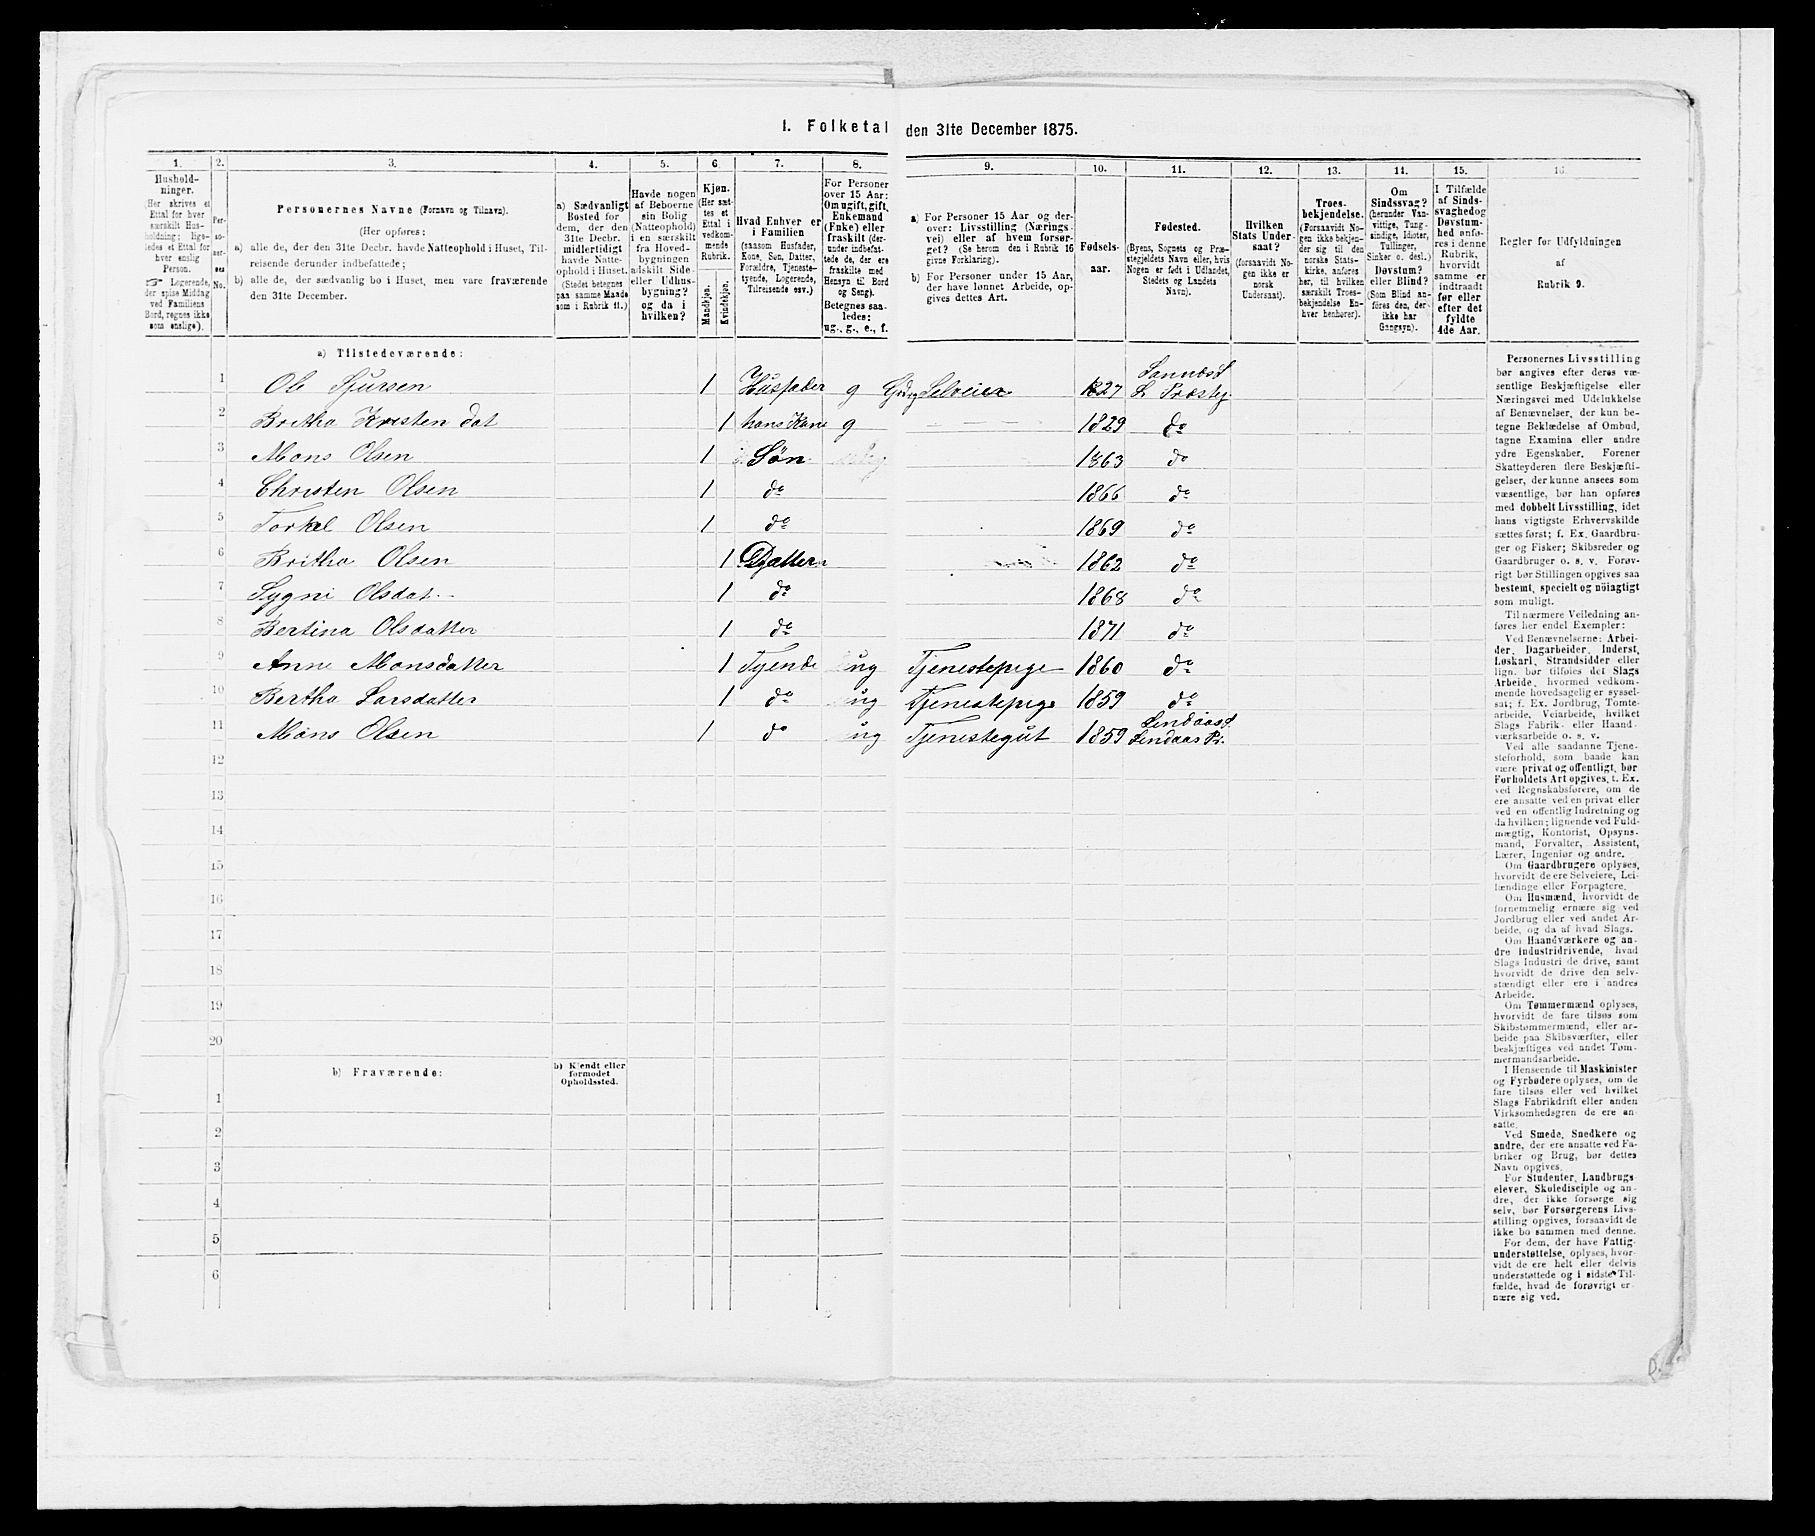 I. Folketal den 31te December 1875.
1. 2. 3. 4. 5. 6. 7. 8. 9. 10. 11. 12. 13. 14. 15. 16.
Hushold-
ninger.
Her skrives et
Ettal for hver
særskilt Hus-
holdning; lige-
ledes et Ettal for
hver enslig
Person.
☞ Logerende,
der spise Middag
ved Familiens
Bord, regnes ikke
som enslige).
Per-
so-
ner-
nes
No.
Personernes Navne (Fornavn og Tilnavn).
(Her opføres:
a) alle de, der den 31te Decbr. havde Natteophold i Huset, Til-
reisende derunder indbefattede;
b) alle de, der sædvanlig bo i Huset, men vare fraværende
den 31te December.
a) Sædvanligt
Bosted for
dem, der den
31te Decbr.
midlertidigt
havde Natte-
ophold i Huset.
(Stedet betegnes
paa samme Maade
som i Rubrik 11.)
Havde nogen
af Beboerne
sin Bolig
(Natteophold)
i en særskilt
fra Hoved-
bygningen
adskilt Side-
eller Udhus-
bygning?
og da i
hvilken?
Kjøn.
(Her sæt-
tes et
Ettal i
vedkom-
mende
Rubrik.
Mandkjøn.
Kvindekjøn.
Hvad Enhver er
i Familien
(saasom Husfader,
Kone, Søn, Datter,
Forældre, Tjeneste-
tyende, Logerende,
Tilreisende osv.)
For Personer
over 15 Aar:
Om ugift, gift,
Enkemand
(Enke) eller
fraskilt (der-
under indbefat-
tede de, der ere
fraskilte med
Hensyn til Bord
og Seng).
Betegnes saa-
ledes:
ug., g., e., f.
a) For Personer 15 Aar og der-
over: Livsstilling (Nærings-
vei) eller af hvem forsør-
get? (Se herom den i Rubrik 16
givne Forklaring).
b) For Personer under 15 Aar,
der have lønnet Arbeide, op-
gives dettes Art.
Fødsels-
aar.
Fødested.
(Byens, Sognets og Præ-
stegjeldets Navn eller, hvis
Nogen er født i Udlandet,
Stedets og Landets
Navn).
Hvilken
Stats Under-
saat?
(forsaavidt No-
gen ikke er
norsk
Undersaat).
Troes-
bekjendelse.
(Forsaavidt No-
gen ikke bekjen-
der sig til den
norske Stats-
kirke, anføres
her, til hvilken
særskilt Troes-
bekjendelse En-
hver henhører).
Om
Sindssvag?
(herunder Van-
vittige, Tung-
sindige, Idioter,
Tullinger,
Sinker o. desl.)
Døvstum?
eller Blind?
(Som Blind an-
føres den, der
ikke har
Gangsyn).
I Tilfælde
af Sinds-
svaghed og
Døvstum-
hed anfø-
res i denne
Rubrik,
hvorvidt
samme er
indtraadt
før eller
efter det
fyldte
4de Aar.
Regler for Udfyldningen
af
Rubrik 9.
a) Tilstedeværende:
1 Ole Sjursen 1 Husfader g Selveier 1827 Præstg.
2 Britha Kristen dat 1 hans Kone g 1829 do
3 Mons Olsen 1 Søn 1863 do
4 Christen Olsen 1 do 1866 do
5 Torkel Olsen 1 do 1869 do
6 Britha Olsen 1 Datter 1862 do
7 Sygni Olsdat 1 do 1868 do
8 Bertina Olsdatter 1 do 1871 do
9 Anne Monsdatter 1 Tyende ug Tjenestepige 1860 do
10 Bertha Larsdatter 1 do ug Tjenestepige 1859 do
11 Mons Olsen 1 do ug Tjenestegut 1859 Lindaas S. Lindaas Pr.
12
13
14
15
16
17
18
19
20
b) Fraværende:
b) Kjendt eller
formodet
Opholdssted.
1
2
3
4
5
6
Personernes Livsstilling
bør angives efter deres væ-
sentlige Beskjæftigelse eller
Næringsvei med Udelukkelse
af Benævnelser, der kun be-
tegne Beklædelse af Ombud,
tagne Examina eller andre
ydre Egenskaber. Forener
Skatteyderen flere Beskjæfti-
gelser, der kunne ansees som
væsentlige, bør han opføres
med dobbelt Livsstilling, idet
hans vigtigste Erhvervskilde
sættes først; f. Ex. Gaardbru-
ger og Fisker; Skibsreder og
Gaardbruger o. s. v. Forøv-
rigt bør Stillingen opgives saa
bestemt, specielt og nøiagtigt
som muligt.
Til nærmere Veiledning an-
føres her endel Exempler:
Ved Benævnelserne: Arbei-
der, Dagarbeider, Inderst,
Løskarl, Strandsidder eller
lign. bør tilføies det Slags
Arbeide, hvormed vedkom-
mende hovedsagelig er syssel-
sat; f. Ex. Jordbrug, Tomte-
arbeide, Veiarbeide, hvilket
Slags Fabrik- eller Haand-
værksarbeide o. s. v.
Ved alle saadanne Tjene-
steforhold, som baade kan
være privat og offentligt, bør
Forholdets Art opgives, t. Ex.
ved Regnskabsførere, om de
ere ansatte ved en privat eller
ved en offentlig Indretning og
da hvilken; lignende ved Fuld-
mægtig, Kontorist, Opsyns-
mand, Forvalter, Assistent,
Lærer, Ingeniør og andre.
Om Gaardbrugere oplyses,
hvorvidt de ere Selveiere, Lei-
lændinge eller Forpagtere.
Om Husmænd, hvorvidt de
fornemmelig ernære sig ved
Jordbrug eller ved andet Ar-
beide, og da af hvad Slags.
Om Haandværkere og an-
dre industridrivende, hvad
Slags Industri de drive, samt
hvorvidt de drive den selv-
stændigt eller ere i andres
Arbeide.
Om Tømmermænd oplyses,
hvorvidt de fare tilsøs som
Skibstømmermænd, eller ar-
beide paa Skibsværfter, eller
beskjæftiges ved andet Tøm-
mermandsarbeide.
I Henseende til Maskinister
og Fyrbødere oplyses, om de
fare tilsøs eller ved hvilket
Slags Fabrikdrift eller anden
Virksomhedsgren de ere an-
satte.
Ved Smede, Snedkere og
andre, der ere ansatte ved Fa-
briker og Brug, bør dettes
Navn opgives.
For Studenter, Landbrugs-
elever, Skoledisciple og an-
dre, der ikke forsørge sig
selv, bør Forsørgerens Livs-
stilling opgives, forsaavidt de
ikke bo sammen med denne.
For dem, der have Fattig-
understøttelse, oplyses, hvor-
vidt de ere helt eller delvis
understøttede og i sidste Til-
fælde, hvad de forøvrigt er-
nære sig ved.